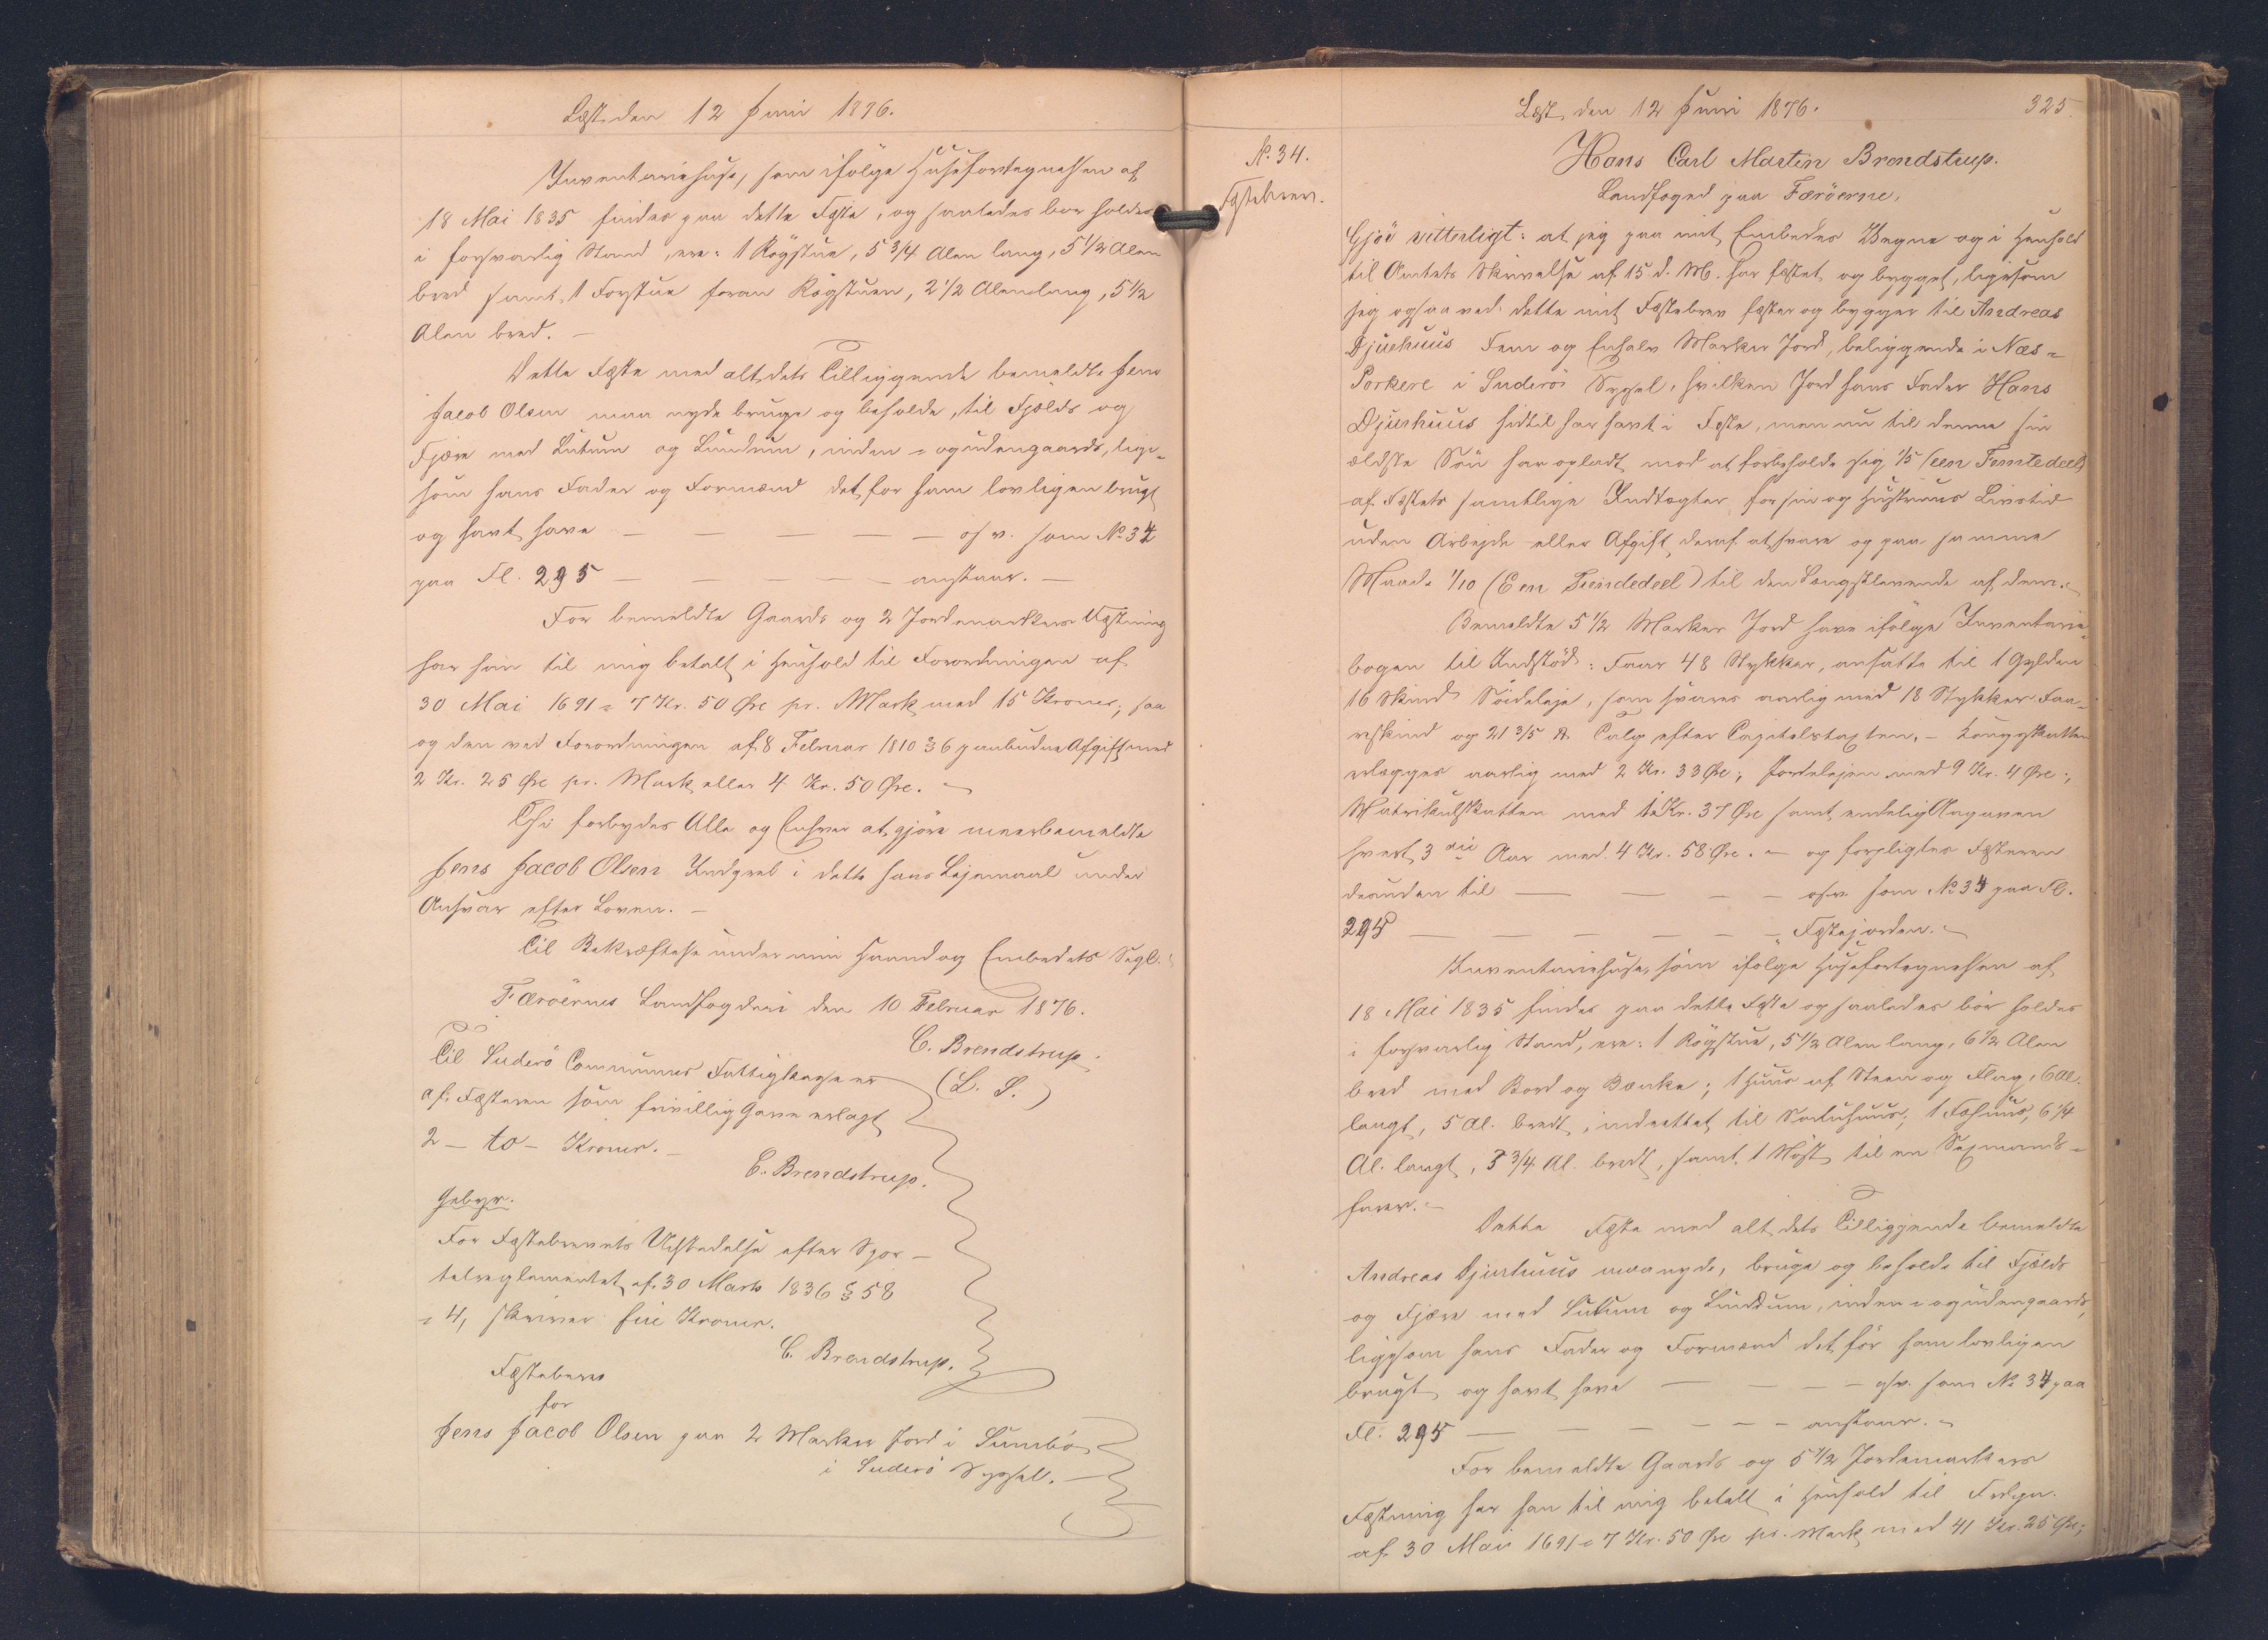 Læst den 12 Juni 1876.
Inventariehuse, som ifølge Husefortegnelsen af
18 Mai 1835 findes paa dette Fæste, og saaledes bør holdes
i forsvarlig Stand, ere: 1 Røgstue, 5 3/4 Alen lang, 5 1/2 Alen
bred samt 1 Forstue foran Røgstuen, 2 1/2 Alen lang, 5 1/2
Alen bred. —
Dette Fæste med alt dets Tilliggende bemeldte Jens
Jacob Olsen maa nyde bruge og beholde, til Fjelds og
Fjære med Lutum og Lundum, inden- og udengaards, lige-
som hans Fader og Formænd det før ham lovligen brugt
og havt have — — — — — osv. som No 34
paa Fl. 295 — — — — — anstaar. —
For bemeldte Gaards og 2 Jordemarkers Fæstning
har han til mig betalt i Henhold til Forordningen af
30 Mai 1691 = 7 Kr. 50 Øre pr. Mark med 15 Kroner; saa
og den ved Forordningen af 8 Februar 1810 § 6 paabudne Afgift med
2 Kr. 25 Øre pr. Mark eller 4 Kr. 50 Øre. —
Thi forbydes Alle og Enhver at gjøre meerbemeldte
Jens Jacob Olsen Indgreb i dette hans Lejemaal under
Ansvar efter Loven. —
Til Bekræftelse under min Haand og Embedets Segl.
Færøernes Landfogderi den 10 Februar 1876.
C. Brendstrup.
(L. S.)
Til Suderø Communes Fattigkasse er
af Fæsteren som frivillig Gave erlagt
2 — to — Kroner. —
C. Brendstrup.
Gebyr.
For Fæstebrevets Udstedelse efter Spor-
telreglementet af 30 Marts 1836 § 58
= 4, skriver fire Kroner.
C. Brendstrup.
Fæstebrev
for
Jens Jacob Olsen paa 2 Marker Jord i Sumbø
i Suderø Syssel. —
Læst den 12 Juni 1876.
325
No. 34.
Fæstebrev.
Hans Carl Martin Brendstrup.
Landfoged paa Færøerne,
Gjør vitterligt: at jeg paa mit Embedes Vegne og i Henhold
til Amtets Skrivelse af 15 d. M. har fæstet og bygget, ligesom
jeg ogsaa ved dette mit Fæstebrev fæster og bygger til Andreas
Djurhuus Fem og Enhalv Marker Jord, beliggende i Næs-
Porkere i Suderø Syssel, hvilken Jord hans Fader Hans
Djurhuus hidtil har havt i Fæste, men nu til denne sin
ældste Søn har opladt mod at forbeholde sig 1/5 (een Femtedeel)
af Fæstets samtlige Indtægter for sin og Hustrues Livstid
uden Arbejde eller Afgift deraf at svare og paa samme
Maade 1/10 (Een Tiendedeel) til den Længstlevende af dem. —
Bemeldte 5 1/2 Marker Jord have ifølge Inventarie-
bogen til Indstød: Faar 48 Stykker, ansatte til 1 Gylden
16 Skind Søideleje, som svares aarlig med 18 Stykker Faa-
reskind og 21 3/5 ℔ Talg efter Capitelstaxten. — Kongsskatten
erlægges aarlig med 2 Kr. 33 Øre; Jordelejen med 9 Kr. 4 Øre;
Matrikulskatten med 1 Kr. 37 Øre samt endelig Aagaven
hvert 3die Aar med 4 Kr. 58 Øre. — og forpligtes Fæsteren
desuden til — — — — osv. som No 34 paa Fl.
295 — — — — — — Fæstejorden. —
Inventariehuse, som ifølge Husefortegnelsen af
18 Mai 1835 findes paa dette Fæste og saaledes bør holdes
i forsvarlig Stand, ere: 1 Røgstue, 5 1/2 Alen lang, 6 1/2 Alen
bred med Bord og Bænke; 1 Huus af Steen og Flag, 6 Al.
langt, 5 Al. bredt, indrettet til Sodnhuus, 1 Fæhuus, 6 1/4
Al. langt, 3 3/4 Al. bredt, samt 1 Nøst til en Sexmands-
farer. —
Dette Fæste med alt dets Tilliggende bemeldte
Andreas Djurhuus maa nyde, bruge og beholde til Fjelds
og Fjære med Lutum og Lunddum, inden- og udengaards,
ligesom hans Fader og Formænd det før ham lovligen
brugt og havt have — — — — osv. som No 34 paa
Fl. 295 — — — — — anstaar. —
For bemeldte Gaards og 5 1/2 Jordemarkers
Fæstning har han til mig betalt i Henhold til Frdgn.
af 30 Mai 1691 = 7 Kr. 50 Øre pr. Mark med 41 Kr. 25 Øre;